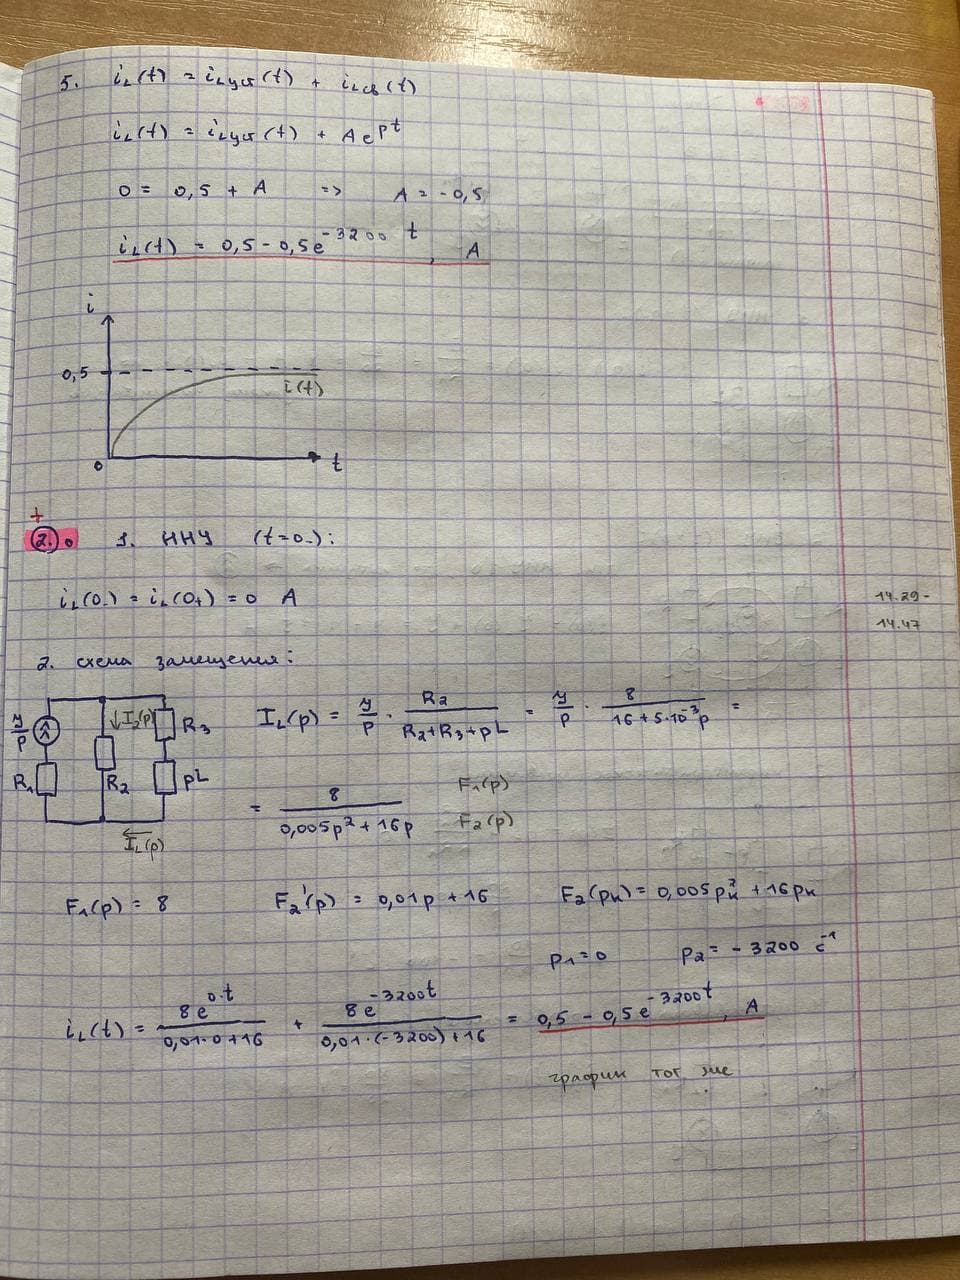 5. iL(t) = iLуст(t) + iLсв(t)
iL(t) = iLуст(t) + Ae^pt
0 = 0,5 + A => A = -0,5
iL(t) = 0,5 - 0,5e^-3200t, A
i
0,5
i(t)
0
t
+
2. 1. ННУ (t=0-):
iL(0-) = iL(0+) = 0 A
14.29 -
14.47
2. схема замещения:
У/p I2(p) R3 R1 R2 pL IL(p)
IL(p) = У/p · R2/(R2+R3+pL) = У/p · 8/(16+5·10^-3p) =
= 8/(0,005p^2+16p) F1(p)/F2(p)
F1(p) = 8 F2'(p) = 0,01p + 16 F2(pк) = 0,005pк^2 + 16pк
p1 = 0 p2 = -3200 c^-1
iL(t) = 8e^0·t/(0,01·0+16) + 8e^-3200t/(0,01·(-3200)+16) = 0,5 - 0,5e^-3200t, A
график тот же